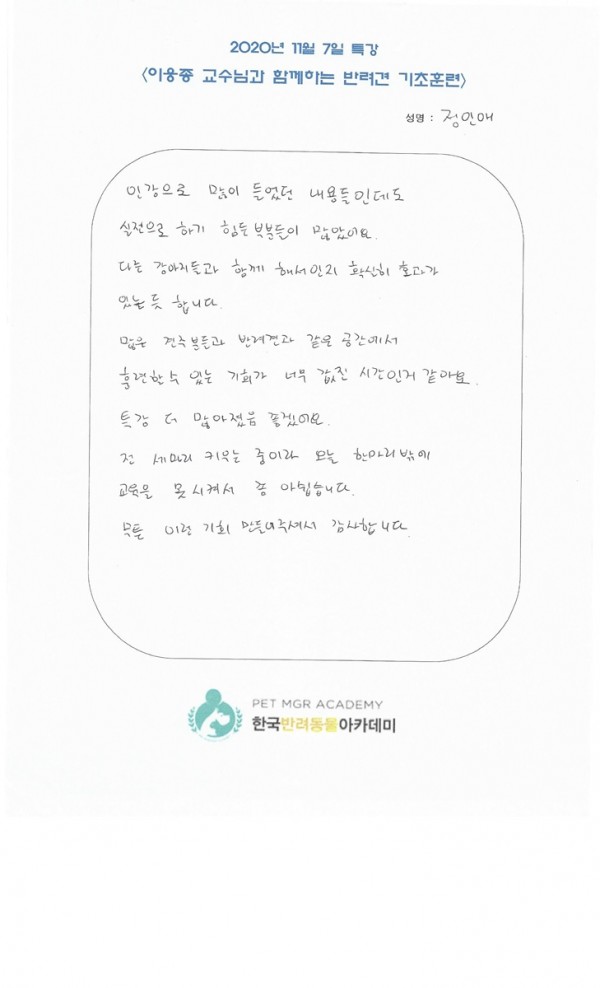 2020년 11월 7일 특강
<이웅종 교수님과 함께하는 반려견 기초훈련>
성명 : 정인애
인강으로 많이 들었던 내용들인데도
실전으로 하기 힘든 부분들이 많았어요.
다른 강아지들과 함께 해서인지 확실히 효과가
있는듯 합니다.
많은 견주분들과 반려견과 같은 공간에서
훈련할 수 있는 기회가 너무 값진 시간인거 같아요.
특강 더 많아졌음 좋겠어요.
전 세마리 키우는 중이라 오늘 한마리밖에
교육을 못시켜서 좀 아쉽습니다.
무튼 이런 기회 만들어주셔서 감사합니다.
PET MGR ACADEMY
한국반려동물아카데미